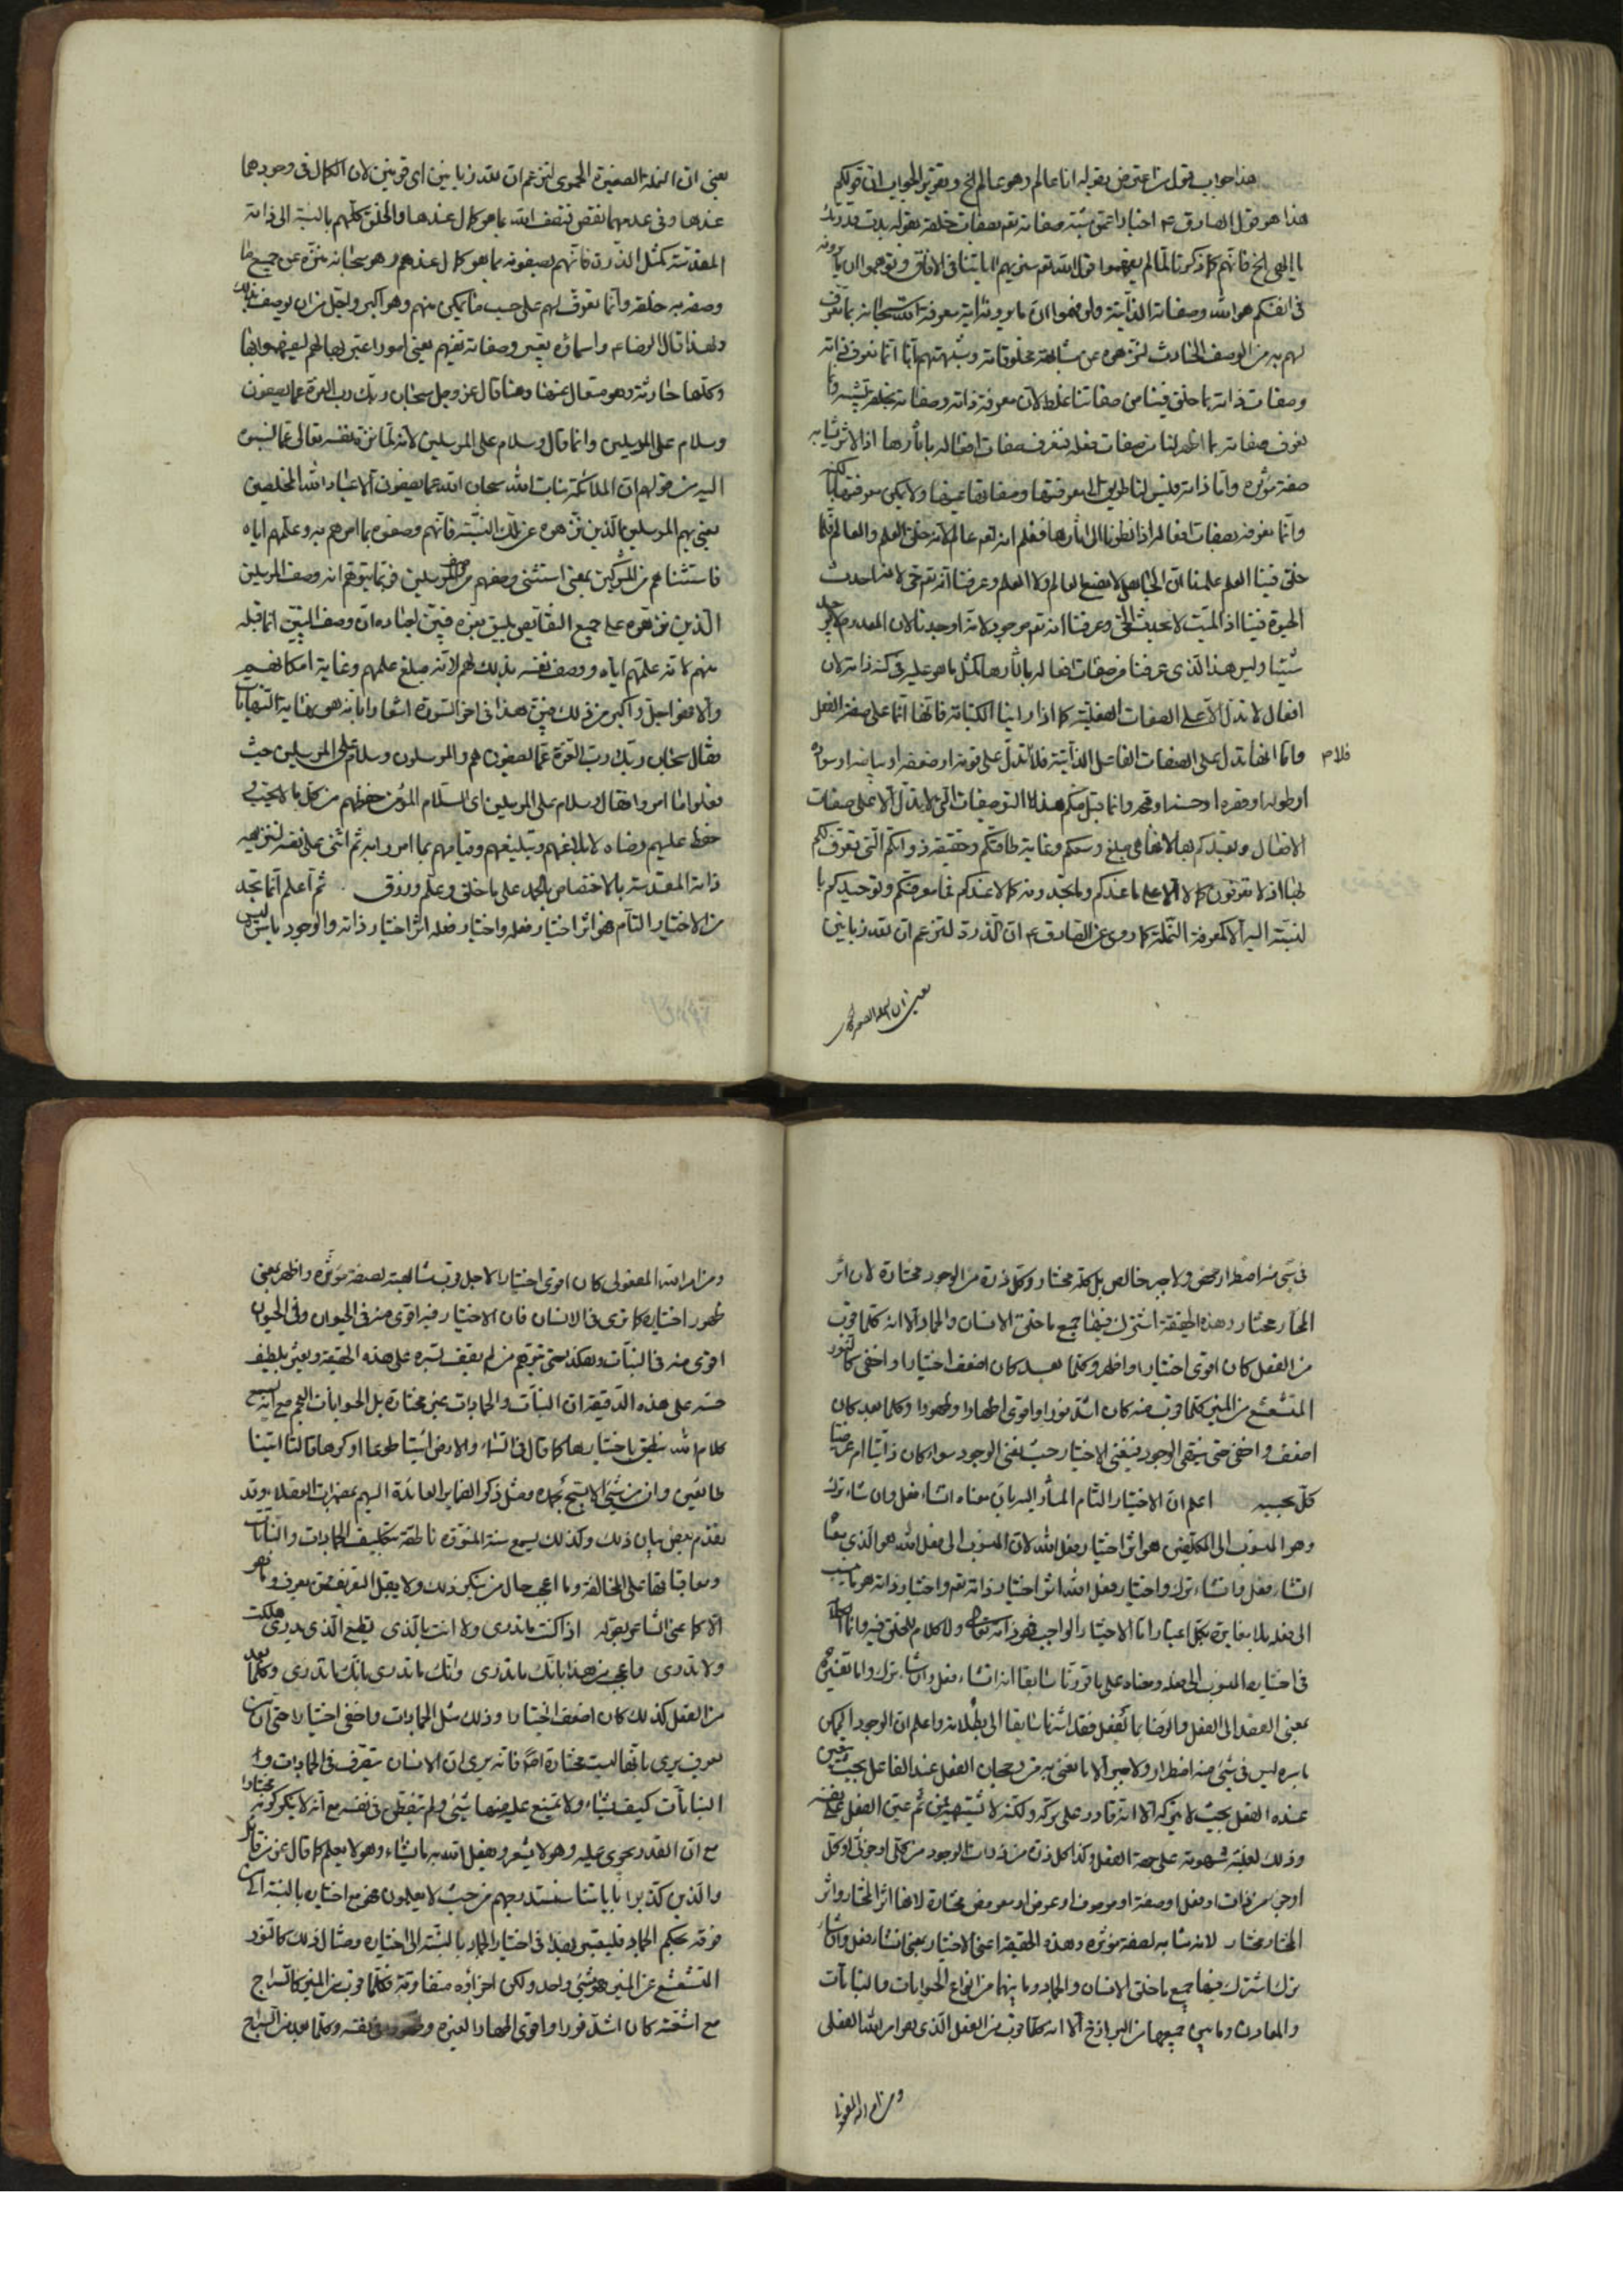 هذا جواب قول من اعترض بقوله انا عالم وهو عالم الخ وتقرير الجواب ان قولكم
هذا هو قول الصادق ع اخبارا عمن شبه صفاته تعم بصفات خلقه بقوله بدت قدرتك
يا الهي الخ فانهم كما ذكرنا لما لم يفهموا قول الله تعم سنريهم اياتنا في الافاق وتوهموا ان ما يرونه
في انفسكم هو الله وصفاته الذاتية ولو فهموا ان ما يرونه اية معرفة الله سبحانه بما تعرف
لهم به من الوصف الحادث لنزهوه عن مشابهة مخلوقاته وشبهتهم انا انما نعرف ذاته
وصفات ذاته بما خلق فينا من صفاتنا غلط لان معرفة ذاته وصفاته بخلقه تشبيه وانما
نعرف صفاته بما اظهر لنا من صفات فعله فنعرف صفات افعاله باثارها اذ الاثر يشابه
صفة مؤثره واما ذاته فليس لنا طريق الى معرفتها وصفاتها عينها ولا يمكن معرفتها لنا لكنه
وانما نعرفه بصفات افعاله اذا نظرنا الى اثارها فنعلم انه تعم عالم لانه خلق العلم والعالم فلما
خلق فينا العلم علمنا ان الجاهل لا يصنع العالم ولا العلم وعرفنا انه تعم حي لانه احدث
الحيوة فينا اذ الميت لا يحدث الحي وعرفنا انه تعم موجود لانه اوجدنا لان المعدوم لا يوجد
شيئا وليس هذا الذي عرفنا من صفات افعاله باثارها كمثل ما هو عليه في كنه ذاته لان
افعال لا تدل الا على الصفات الفعلية كما اذا راينا الكتابة فانها انما على صفة الفعل
واما انها تدل على الصفات الفاعل الذاتية فلا تدل على قوته او ضعفه او بياضه او سواده
فلام
او طوله او قصره او حسنه او قبحه وانما قبل منكم هذه التوصيفات التي لا تدل الا على صفات
الافعال وتعبدكم بها لانها هي مبلغ وسعكم وغاية طاقتكم وحقيقة ذواتكم التي تعرف لكم
بها اذ لا تعرفون كمالا الا على ما عندكم وما تجدونه كمالا عندكم فما معرفتكم وتوحيدكم با
لنسبة اليه الا كمعرفة النملة كما روي عن الصادق ع ان الذرة لتزعم ان لله زبانين
يعني ان النملة الصغيرة
يعني ان النملة الصغيرة الحموى لتزعم ان لله زبانين اي قرنين لان الكمال في وجودهما
عندها وفي عدمهما نقص فتصف الله بما هو كمال عندها والخلق كلهم بالنسبة الى ذاته
المقدسة كمثل الذرة فانهم يصفونه بما هو كمال عندهم وهو سبحانه منزه عن جميع ما
وصفه به خلقه وانما تعرف لهم على حسب ما يمكن منهم وهو اكبر واجل من ان يوصف بذلك
ولهذا قال الرضا ع واسمائه تعبير وصفاته تفهيم يعني امورا عبر بها لهم ليعرفوه بها
وكلها حادثة وهو متعال عنها وهنا قال عز وجل سبحان ربك رب العزة عما يصفون
وسلام على المرسلين وانما قال وسلام على المرسلين لانه لما نزه نفسه تعالى عما نسبوه
اليه من قولهم ان الملائكة بنات الله سبحان الله عما يصفون الا عباد الله المخلصين
يعني بهم المرسلين الذين نزهوه عن تلك النسبة فانهم وصفوه بما امرهم به وعلمهم اياه
فاستثناهم من المشركين بمعنى استثنى وصفهم من وصف المرسلين فربما يتوهم انه وصف المرسلين
الذين نزهوه على جميع النقايص يليق بعزه فبين ايضا ان وصف النبيين انما قبله
منهم لانه علمهم اياه ووصف نفسه بذلك لهم لانه مبلغ علمهم وغاية امكانهم
والا فهو اجل واكبر من ذلك فبين هذا في اخر السورة اشعارا بانه هو نهاية النهايات
فقال سبحان ربك رب العزة عما يصفون هم والمرسلون وسلام على المرسلين حيث
فعلوا ما امروا فقال وسلام على المرسلين اي السلام المؤمن حفظهم من كل ما لا يحب
حفظ عليهم رضاه لابلاغهم وتبليغهم وقيامهم بما امروا به ثم اثنى على نفسه لتنزيه
ذاته المقدسة بالاختصاص بالحمد على ما خلق وعلم ورزق . ثم اعلم انما تجد
من الاختيار التام فهو اثر اختيار فعله واختيار فعله اثر اختيار ذاته والوجود باسره ليس
في شيء منه اضطرار محض ولا جبر خالص بل كله مختار وكل ذرة من الوجود مختارة لان اثر
المختار مختار وهذه الحقيقة اشترك فيها جميع ما خلق الانسان والجماد الا انه كلما قرب
من الفعل كان اقوى اختيارا واظهر وكلما بعد كان اضعف اختيارا واخفى كالنور
المتشعشع من المنير كلما قرب منه كان اشد نورا واقوى اظهارا وظهورا وكلما بعد كان
اضعف واخفى حتى ينتهى الوجود فيفنى الاختيار حيث يفنى الوجود سواء كان ذاتيا ام عرضيا
كل بحسبه اعلم ان الاختيار التام المشار اليه بان معناه ان شاء فعل وان شاء ترك
وهو المنسوب الى المكلفين هو اثر اختيار فعل الله لان المنسوب الى فعل الله هو الذي معناه
ان شاء فعل وان شاء ترك واختيار فعل الله اثر اختيار ذاته تعم واختيار ذاته هو ما ينسب
الى فعله بلا مغايرة بكل اعتبار اما الاختيار الواجب فهو ذاته تعالى ولا كلام للخلق فيه وانما الكلام
في اختياره المنسوب الى فعله ومعناه على ما قررنا سابقا انه ان شاء فعل وان شاء ترك واما تفسيره
بمعنى القصد الى الفعل والرضا بما يفعل فقد اشرنا سابقا الى بطلانه واعلم ان الوجود الممكن
باسره ليس في شيء منه اضطرار ولا جبر الا ما نعني به من رجحان الفعل عند الفاعل بحيث يتعين
عنده الفعل بحيث لا يتركه الا انه قادر على تركه ولكنه لا يشتهيه فمن ثم عين الفعل على نفسه
وذلك لغلبة شهوته على جهة الفعل وكذا كل ذرة من ذرات الوجود من كلي او جزئي او كل
او جزء من ذات او فعل او صفة او موصوف او عرض او معروض مختارة لانها اثر المختار واثر
المختار مختار لانه مشابه لصفة مؤثره وهذه الحقيقة اعني الاختيار بمعنى ان شاء فعل وان شاء
ترك اشترك فيها جميع ما خلق الانسان والجماد وما بينهما من انواع الحيوانات والنباتات
والمعادن وما بين جميعها من البرازخ الا انه كلما قرب من الفعل الذي هو امر الله الفعلي
ومن امر الله المفعولي
ومن امر الله المفعولي كان اقوى اختيارا لاجل قرب مشابهته لصفة مؤثره واظهر بمعنى
ظهور اختياره كما ترى في الانسان فان الاختيار فيه اقوى منه في الحيوان وفي الحيوان
اقوى منه في النبات وهكذا حتى يتوهم من لم يقف بسره على هذه الحقيقة ويعثر بلطيف
حسه على هذه الدقيقة ان النبات والجمادات غير مختارة بل الحيوانات العجم مع انه يسمع
كلام الله ينطق باختيارها كما قال في السماء والارض ائتيا طوعا او كرها قالتا اتينا
طائعين وان من شيء الا يسبح بحمده ومثل ذكر الضماير العائدة اليهم بضمير ات العقلاء وقد
تقدم بعض بيان ذلك وكذلك يسمع سنة المنورة ناطقة بتكليف الجمادات والنباتات
ومعاقباتها على المخالفة وما اعجب حال من ينكر ذلك ولا يقبل التعريف ممن يعرف وما هو
الا كما عنى الشاعر بقوله اذا كنت ما تدري ولا انت بالذي يطيع الذي يدري هلكت
ولا تدري واعجب من هذا بانك ما تدري وانك ما تدري بانك ما تدري وكلما بعد
من الفعل كذلك كان اضعف اختيارا وذلك مثل الجمادات واخفى اختيارا حتى ان من
يعرف يرى بانها ليست مختارة اصلا فانه يرى ان الانسان يتصرف في الجمادات وا
النباتات كيف يشاء ولا تمتنع عليه منها شيء ولم يتفطن في نفسه مع انه لا ينكر كونه مختارا
مع ان القدر يجري عليه وهو لا يشعر ويفعل الله به ما يشاء وهو لا يعلم كما قال عز من قائل
والذين كذبوا باياتنا سنستدرجهم من حيث لا يعلمون فهو مع اختياره بالنسبة الى من
فوقه بحكم الجماد فليعتبر بهذا في اختيار الجماد بالنسبة الى اختياره ومثال ذلك كالنور
المتشعشع عن المنير هو شيء واحد ولكن اجزائه متفاوتة فكلما قرب من المنير كالسراج
مع اشعته كان اشد نورا واقوى اظهارا لغيره وظهورا في نفسه وكلما بعد من السراج